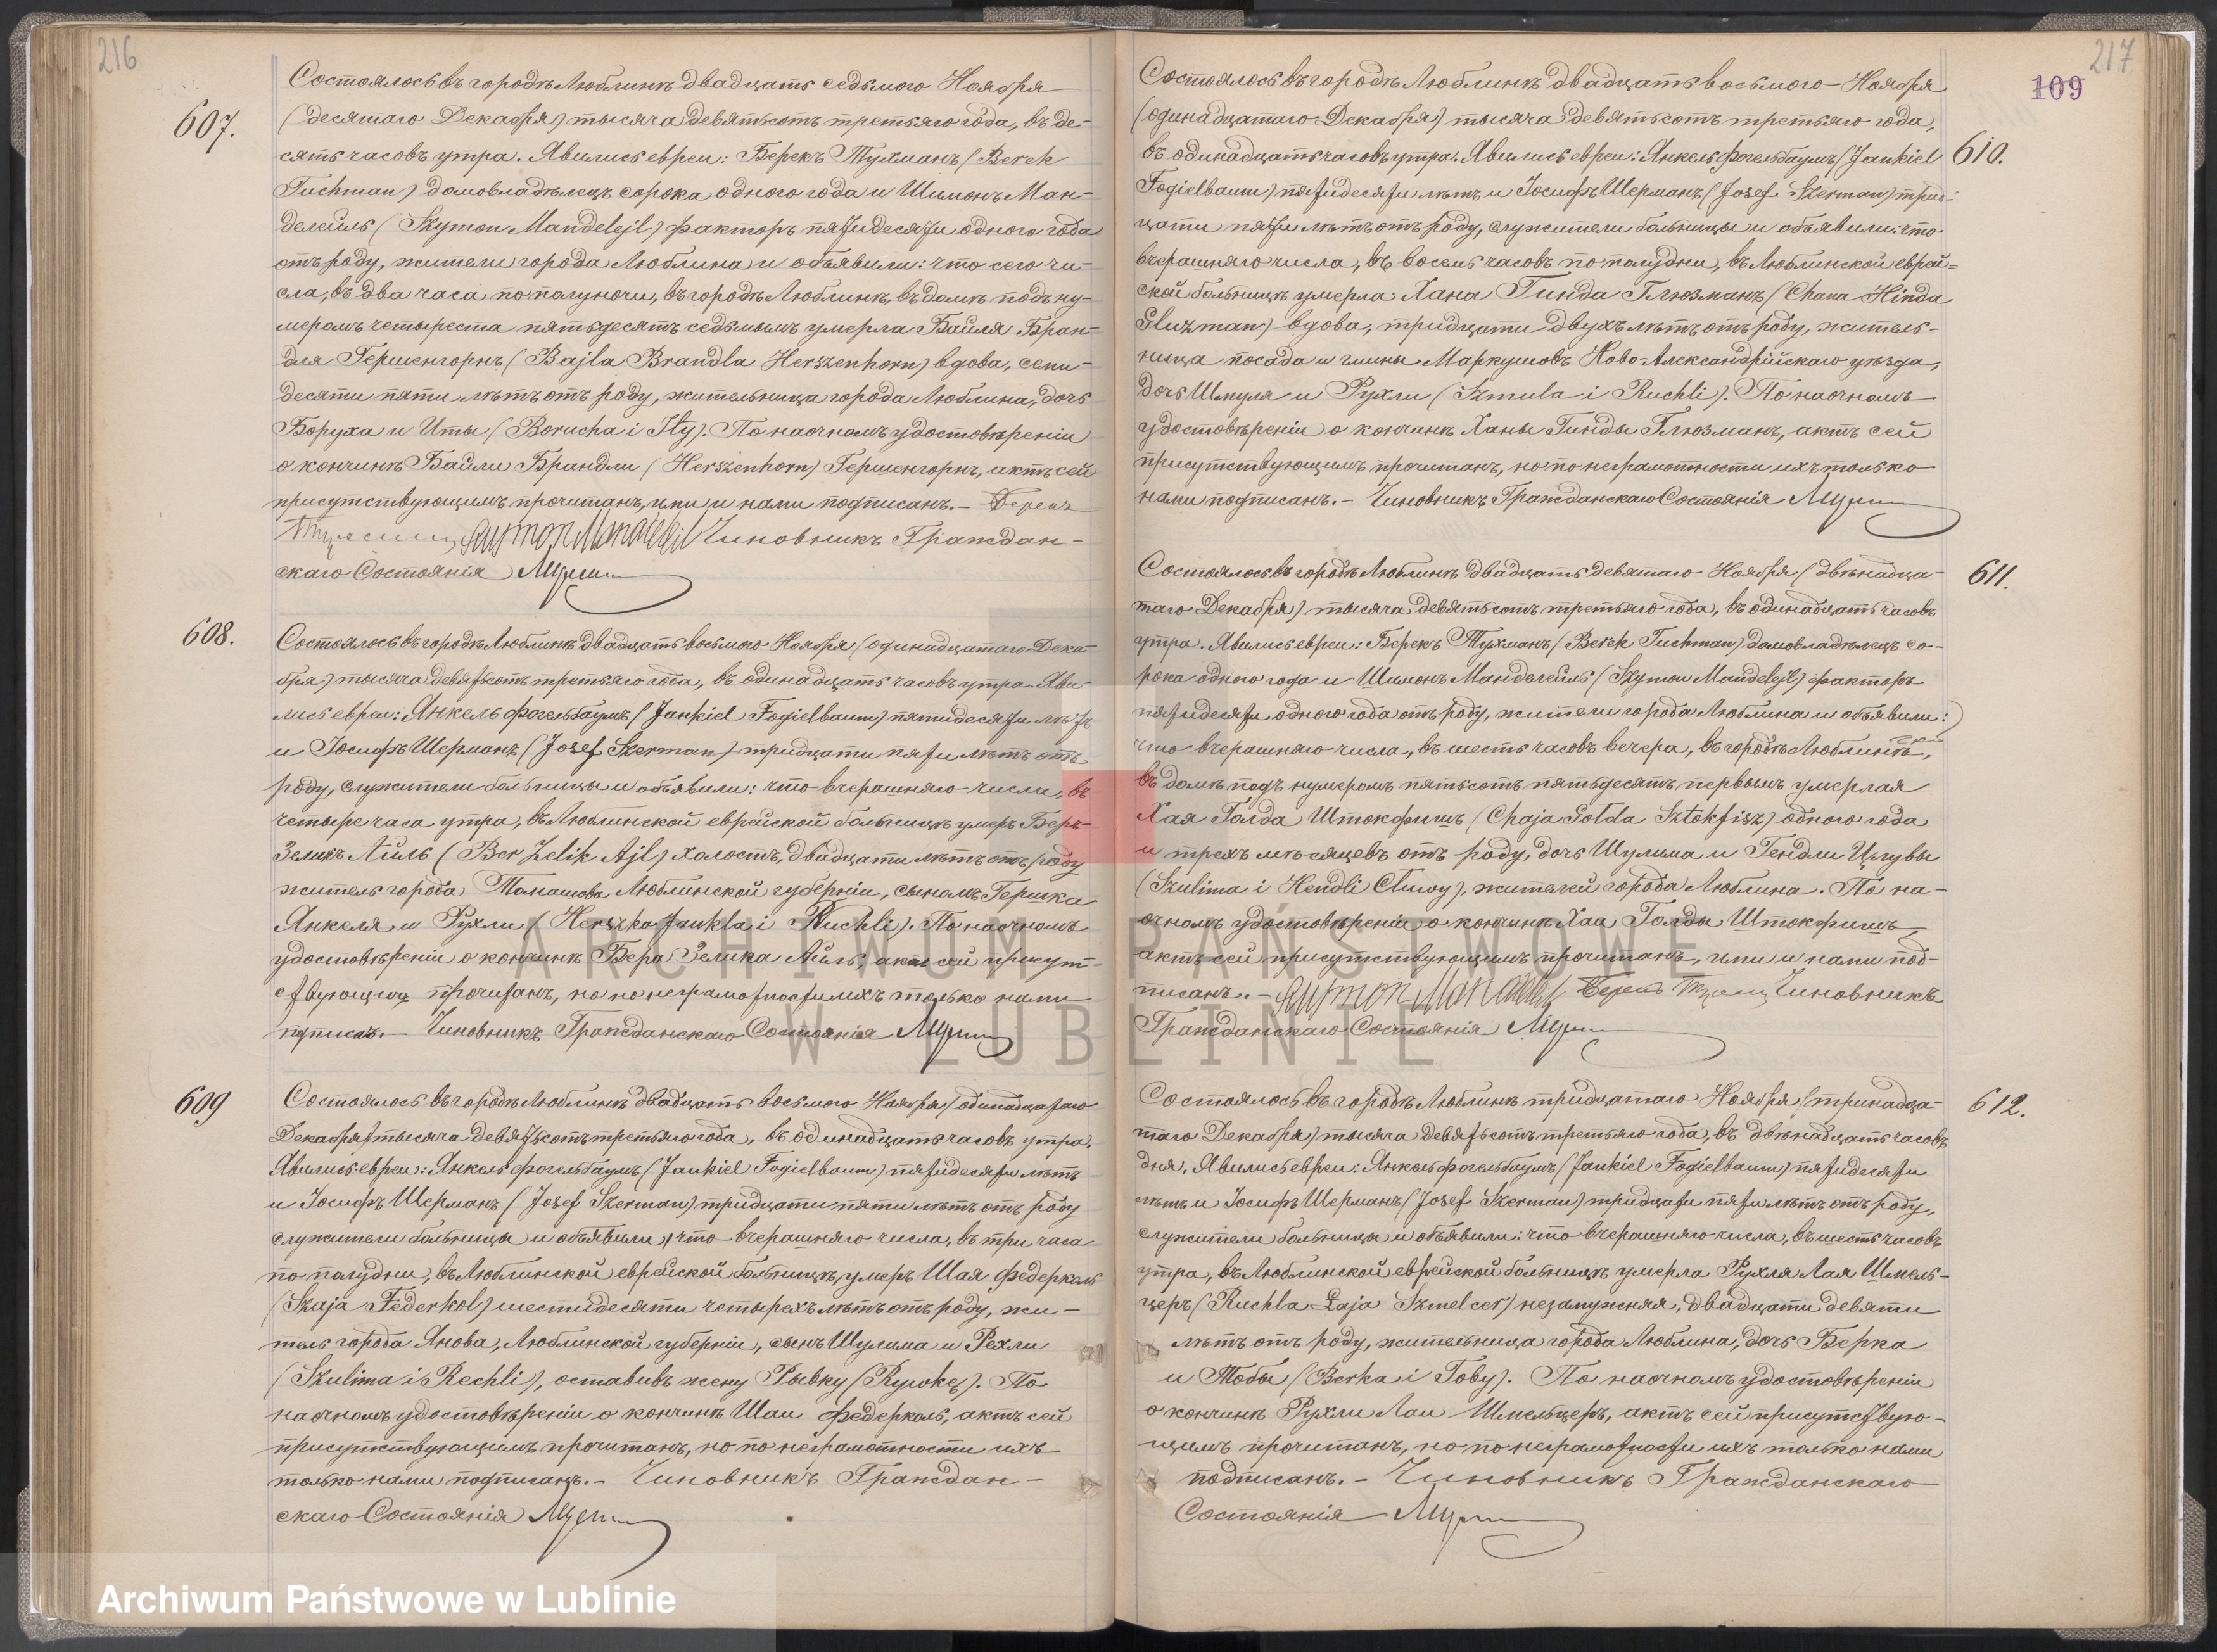 216
607.
Состоялось въ городѣ Люблинѣ двадцать седьмого Ноября
(десятаго Декабря) тысяча девятьсотъ третьяго года, въ де-
сять часовъ утра. Явились евреи: Берекъ Тухманъ (Berek
Tuchman) домовладѣлецъ сорока одного года и Шимонъ Ман-
делейль (Szymon Mandelejl) факторъ пятидесяти одного года
отъ роду, жители города Люблина и объявили: что сего чи-
сла, въ два часа по полуночи, въ городѣ Люблинѣ, въ домѣ подъ ну-
меромъ четыреста пятьдесятъ седьмымъ умерла Байля Бран-
для Гершенгорнъ (Bajla Brandla Herszenhorn) вдова, семи-
десяти пяти лѣтъ отъ роду, жительница города Люблина, дочь
Боруха и Иты (Borucha i Ity). По наочномъ удостовѣреніи
о кончинѣ Байли Брандли (Herszenhorn) Гершенгорнъ, актъ сей
присутствующимъ прочитанъ, ими и нами подписанъ.- Берекъ
Szymon Mandelejl Чиновникъ Граждан-
скаго Состоянія
608.
Состоялось въ городѣ Люблинѣ двадцать восьмого Ноября (одинадцатаго Дека-
бря) тысяча девятьсотъ третьяго года, въ одинадцать часовъ утра. Яви-
лись евреи: Янкель Фогельбаумъ (Jankiel Fogielbaum) пятидесяти лѣтъ
и Іосифъ Шерманъ (Josef Szerman) тридцати пяти лѣтъ отъ
роду, служители больницы и объявили: что вчерашняго числа, въ
четыре часа утра, въ Люблинской еврейской больницѣ умеръ Беръ-
Зеликъ Айль (Ber Zelik Ajl) холостъ, двадцати лѣтъ отъ роду
житель города Томашова Люблинской губерніи, сыномъ Гершка
Янкеля и Рухли (Herszka Jankla i Ruchli). По наочномъ
удостовѣреніи о кончинѣ Бера Зелика Айль, актъ сей присут-
ствующимъ прочитанъ, но по неграмотности ихъ только нами
подписанъ.- Чиновникъ Гражданскаго Состоянія
609
Состоялось въ городѣ Люблинѣ двадцать восьмого Ноября (одинадцатаго
Декабря) тысяча девятьсотъ третьяго года, въ одинадцать часовъ утра.
Явились евреи: Янкель Фогельбаумъ (Jankiel Fogielbaum) пятидесяти лѣтъ
и Іосифъ Шерманъ (Josef Szerman) тридцати пяти лѣтъ отъ роду
служители больницы и объявили, что вчерашняго числа, въ три часа
по полудни, въ Люблинской еврейской больницѣ, умеръ Шая Федерколь
(Szaja Federkol) шестидесяти четырехъ лѣтъ отъ роду, жи-
тель города Янова, Люблинской губерніи, сынъ Шулима и Рехли
(Szulima i Rechli), оставивъ жену Рывку (Rywkę). По
наочномъ удостовѣреніи о кончинѣ Шаи Федерколь, актъ сей
присутствующимъ прочитанъ, но по неграмотности ихъ
только нами подписанъ.- Чиновникъ Граждан-
скаго Состоянія
217
109
610.
Состоялось въ городѣ Люблинѣ двадцать восьмого Ноября
(одинадцатаго Декабря) тысяча девятьсотъ третьяго года,
въ одинадцать часовъ утра. Явились евреи: Янкель Фогельбаумъ (Jankiel
Fogielbaum) пятидесяти лѣтъ и Іосифъ Шерманъ (Josef Szerman) трид-
цати пяти лѣтъ отъ роду, служители больницы и объявили: что
вчерашняго числа, въ восемь часовъ по полудни, въ Люблинской еврей-
ской больницѣ умерла Хана Гинда Глюзманъ (Chana Hinda
Gluzman) вдова, тридцати двухъ лѣтъ отъ роду, житель-
ница посада и гмины Маркушовъ Ново-Александрійскаго уѣзда,
дочь Шмуля и Рухли (Szmula i Ruchli). По наочномъ
удостовѣреніи о кончинѣ Ханы Гинды Глюзманъ, актъ сей
присутствующимъ прочитанъ, но по неграмотности ихъ только
нами подписанъ.- Чиновникъ Гражданскаго Состоянія
611.
Состоялось въ городѣ Люблинѣ двадцать девятаго Ноября (двѣнадца-
таго Декабря) тысяча девятьсотъ третьяго года, въ одинадцать часовъ
утра. Явились евреи: Берекъ Тухманъ (Berek Tuchman) домовладѣлецъ со-
рока одного года и Шимонъ Манделейль (Szymon Mandelejl) факторъ
пятидесяти одного года отъ роду, жители города Люблина и объявили:
что вчерашняго числа, въ шесть часовъ вечера, въ городѣ Люблинѣ,
въ домѣ подъ нумеромъ пятьсотъ пятьдесятъ первымъ умерлая
Хая Голда Штокфишъ (Chaja Gołda Sztokfisz) одного года
и трехъ мѣсяцевъ отъ роду, дочь Шулима и Гендли Цлувы
(Szulima i Hendli Cłuwy), жителей города Люблина. По на-
очномъ удостовѣреніи о кончинѣ Хаи Голды Штокфишъ,
актъ сей присутствующимъ прочитанъ, ими и нами под-
писанъ.- Szymon Mandelejl Берекъ Чиновникъ
Гражданскаго Состоянія
612.
Состоялось въ городѣ Люблинѣ тридцатаго Ноября (тринадца-
таго Декабря) тысяча девятьсотъ третьяго года, въ двѣнадцать часовъ
дня. Явились евреи: Янкель Фогельбаумъ (Jankiel Fogielbaum) пятидесяти
лѣтъ и Іосифъ Шерманъ (Josef Szerman) тридцати пяти лѣтъ отъ роду,
служители больницы и объявили: что вчерашняго числа, въ шесть часовъ
утра, въ Люблинской еврейской больницѣ умерла Рухля Лая Шмель-
церъ (Ruchla Łaja Szmelcer) незамужняя, двадцати девяти
лѣтъ отъ роду, жительница города Люблина, дочь Берка
и Тобы (Berka i Toby). По наочномъ удостовѣреніи
о кончинѣ Рухли Лаи Шмельцеръ, актъ сей присутствую-
щимъ прочитанъ, но по неграмотности ихъ только нами
подписанъ.- Чиновникъ Гражданскаго
Состоянія
ARCHIWUM PAŃSTWOWE
W LUBLINIE
Archiwum Państwowe w Lublinie